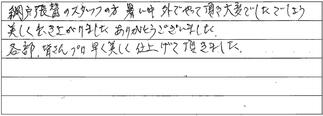 網戸張替のスタッフの方 暑い中 外でやって頂き大変でしたでしょう
美しく出き上がりました ありがとうございました。
各部、皆さんプロ 早く美しく仕上げて頂きました。